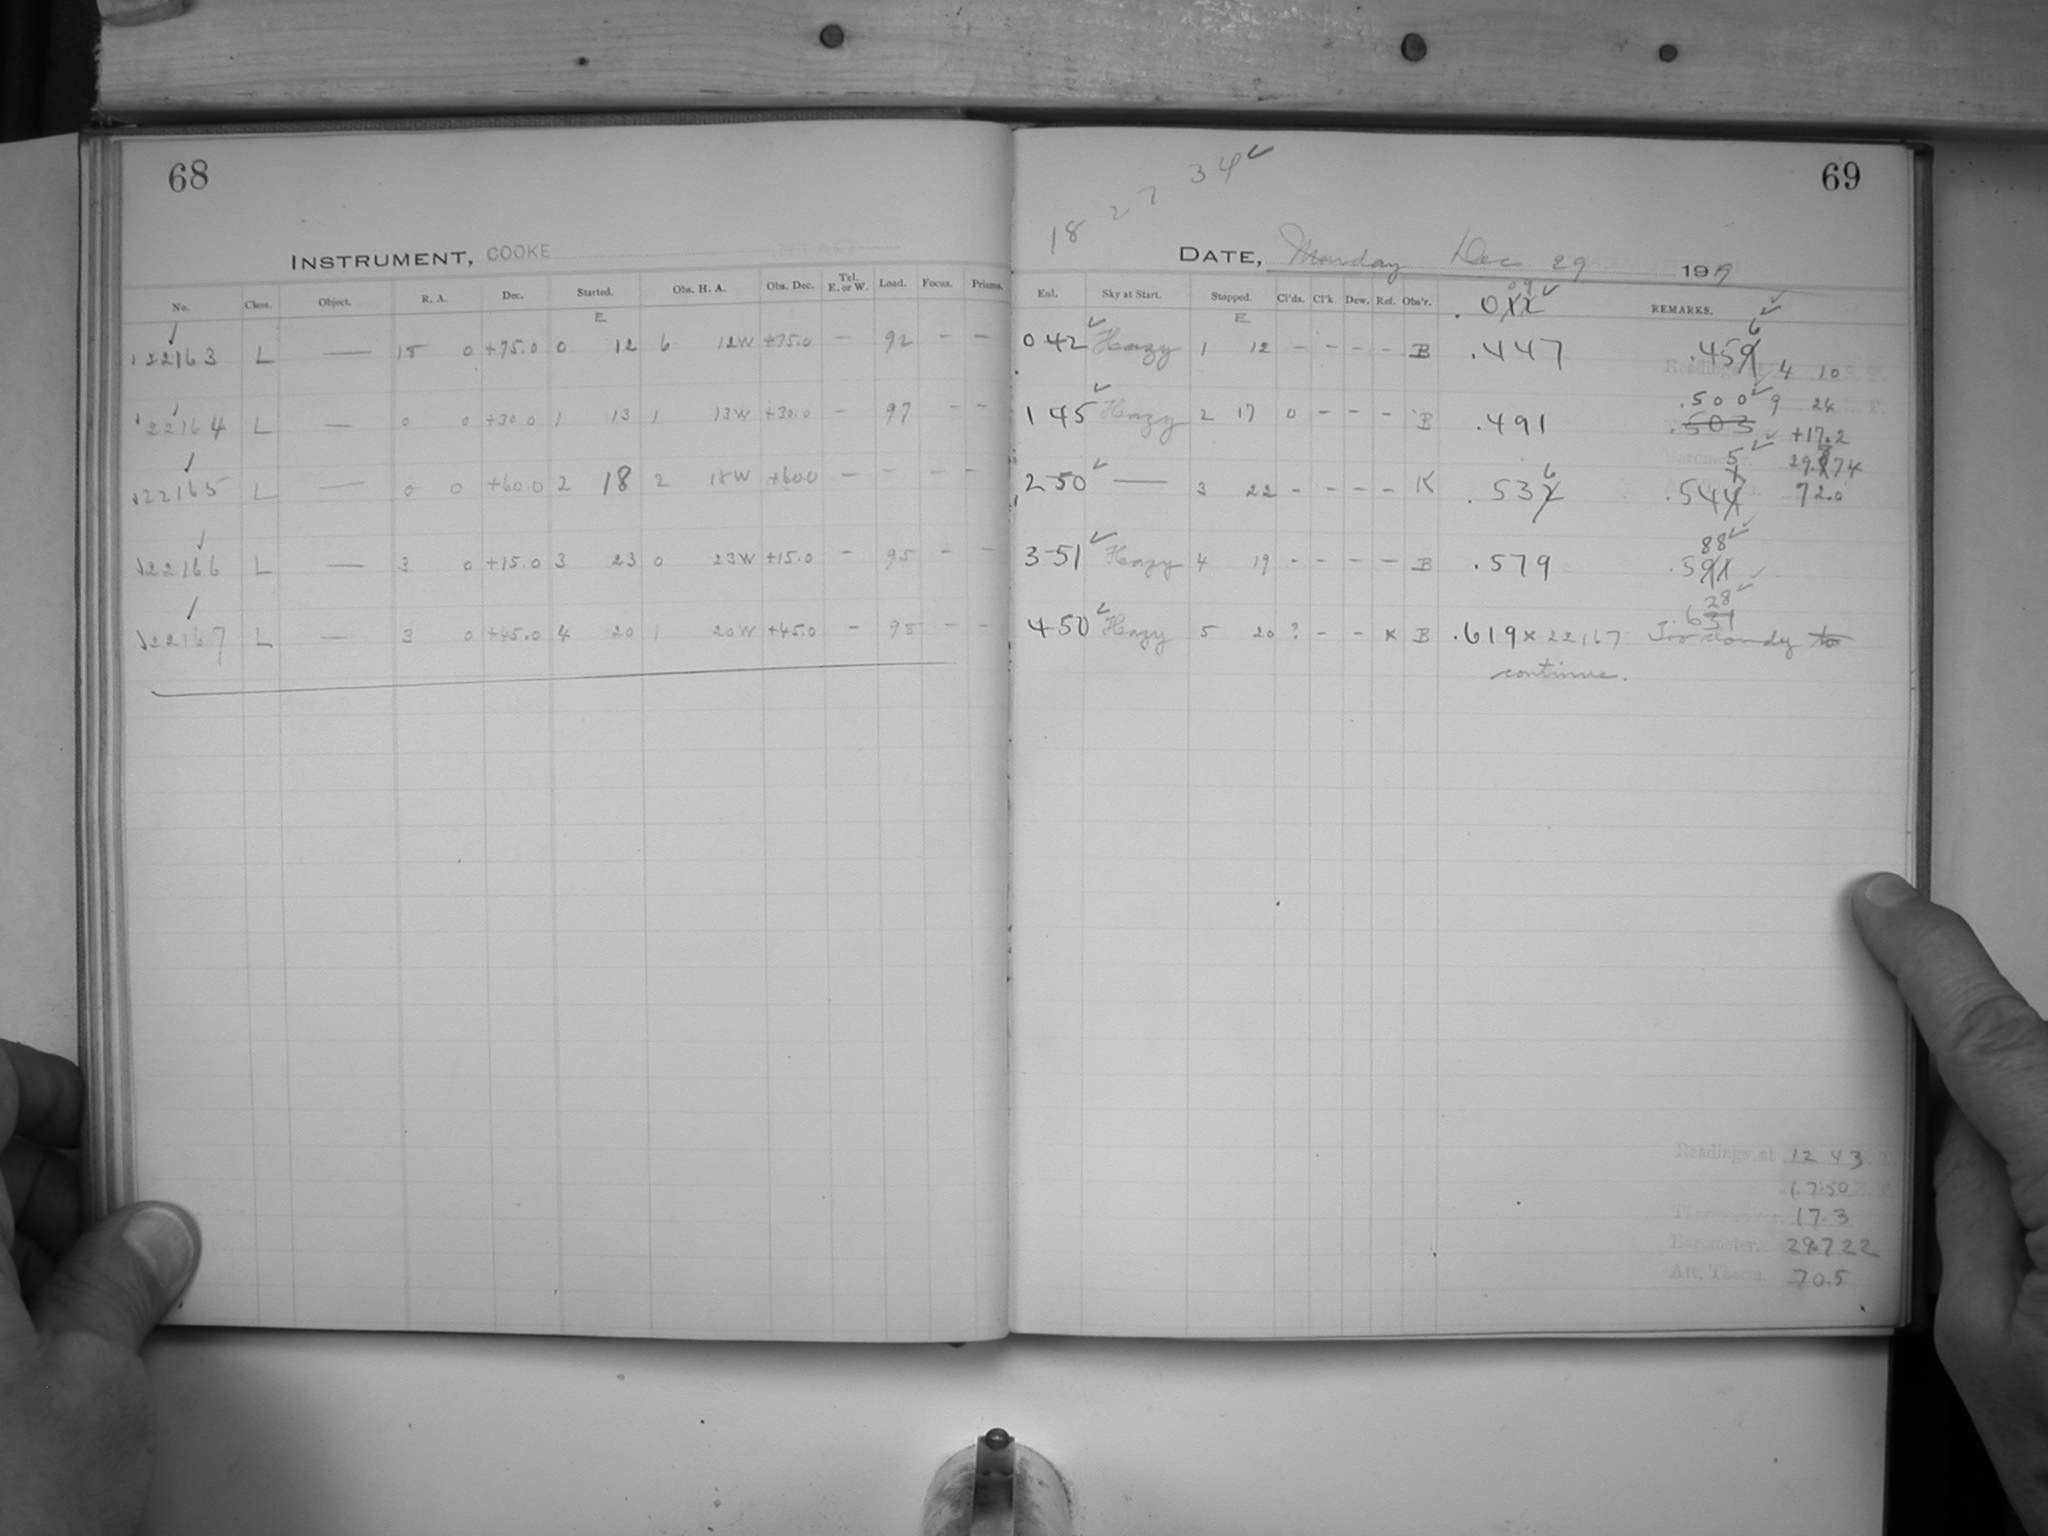 68
INSTRUMENT, COOKE
No. Class. Object. R. A. Dec. Started. Obs. H. A. Obs. Dec. Tel. E. or W. Load. Focus. Prisms.
E
22163 L — 15 0 +75.0 0 12 6 12W +75.0 - 92 - -
22164 L — 0 0 +30.0 1 13 1 13W +30.0 - 97 - -
22165 L — 0 0 +60.0 2 18 2 18W +60.0 - - - -
22166 L — 3 0 +15.0 3 23 0 23W +15.0 - 95 - -
22167 L — 3 0 +45.0 4 20 1 20W +45.0 - 95 - -
69
18 27 34 ✓
DATE, Monday Dec 29 1919
Exl. Sky at Start. Stopped. Cl'ds. Cl'k. Dew. Ref. Obs'r. REMARKS.
E
0 42 ✓ Hazy 1 12 - - - - B .447 .456
4 10
1 45 ✓ Hazy 2 17 0 - - - B .491 .500 ✓
9 24
+17.2
2 50 ✓ — 3 22 - - - - K .536 .545 ✓
72.0
3 51 ✓ Hazy 4 19 - - - - B .579 .588 ✓
4 50 ✓ Hazy 5 20 ? - - x B .619 .628 ✓
x 22167 Too cloudy to
continue.
Readings at 12 43
17 50
Thermometer. 17.3
Barometer. 29.722
Att. Therm. 70.5